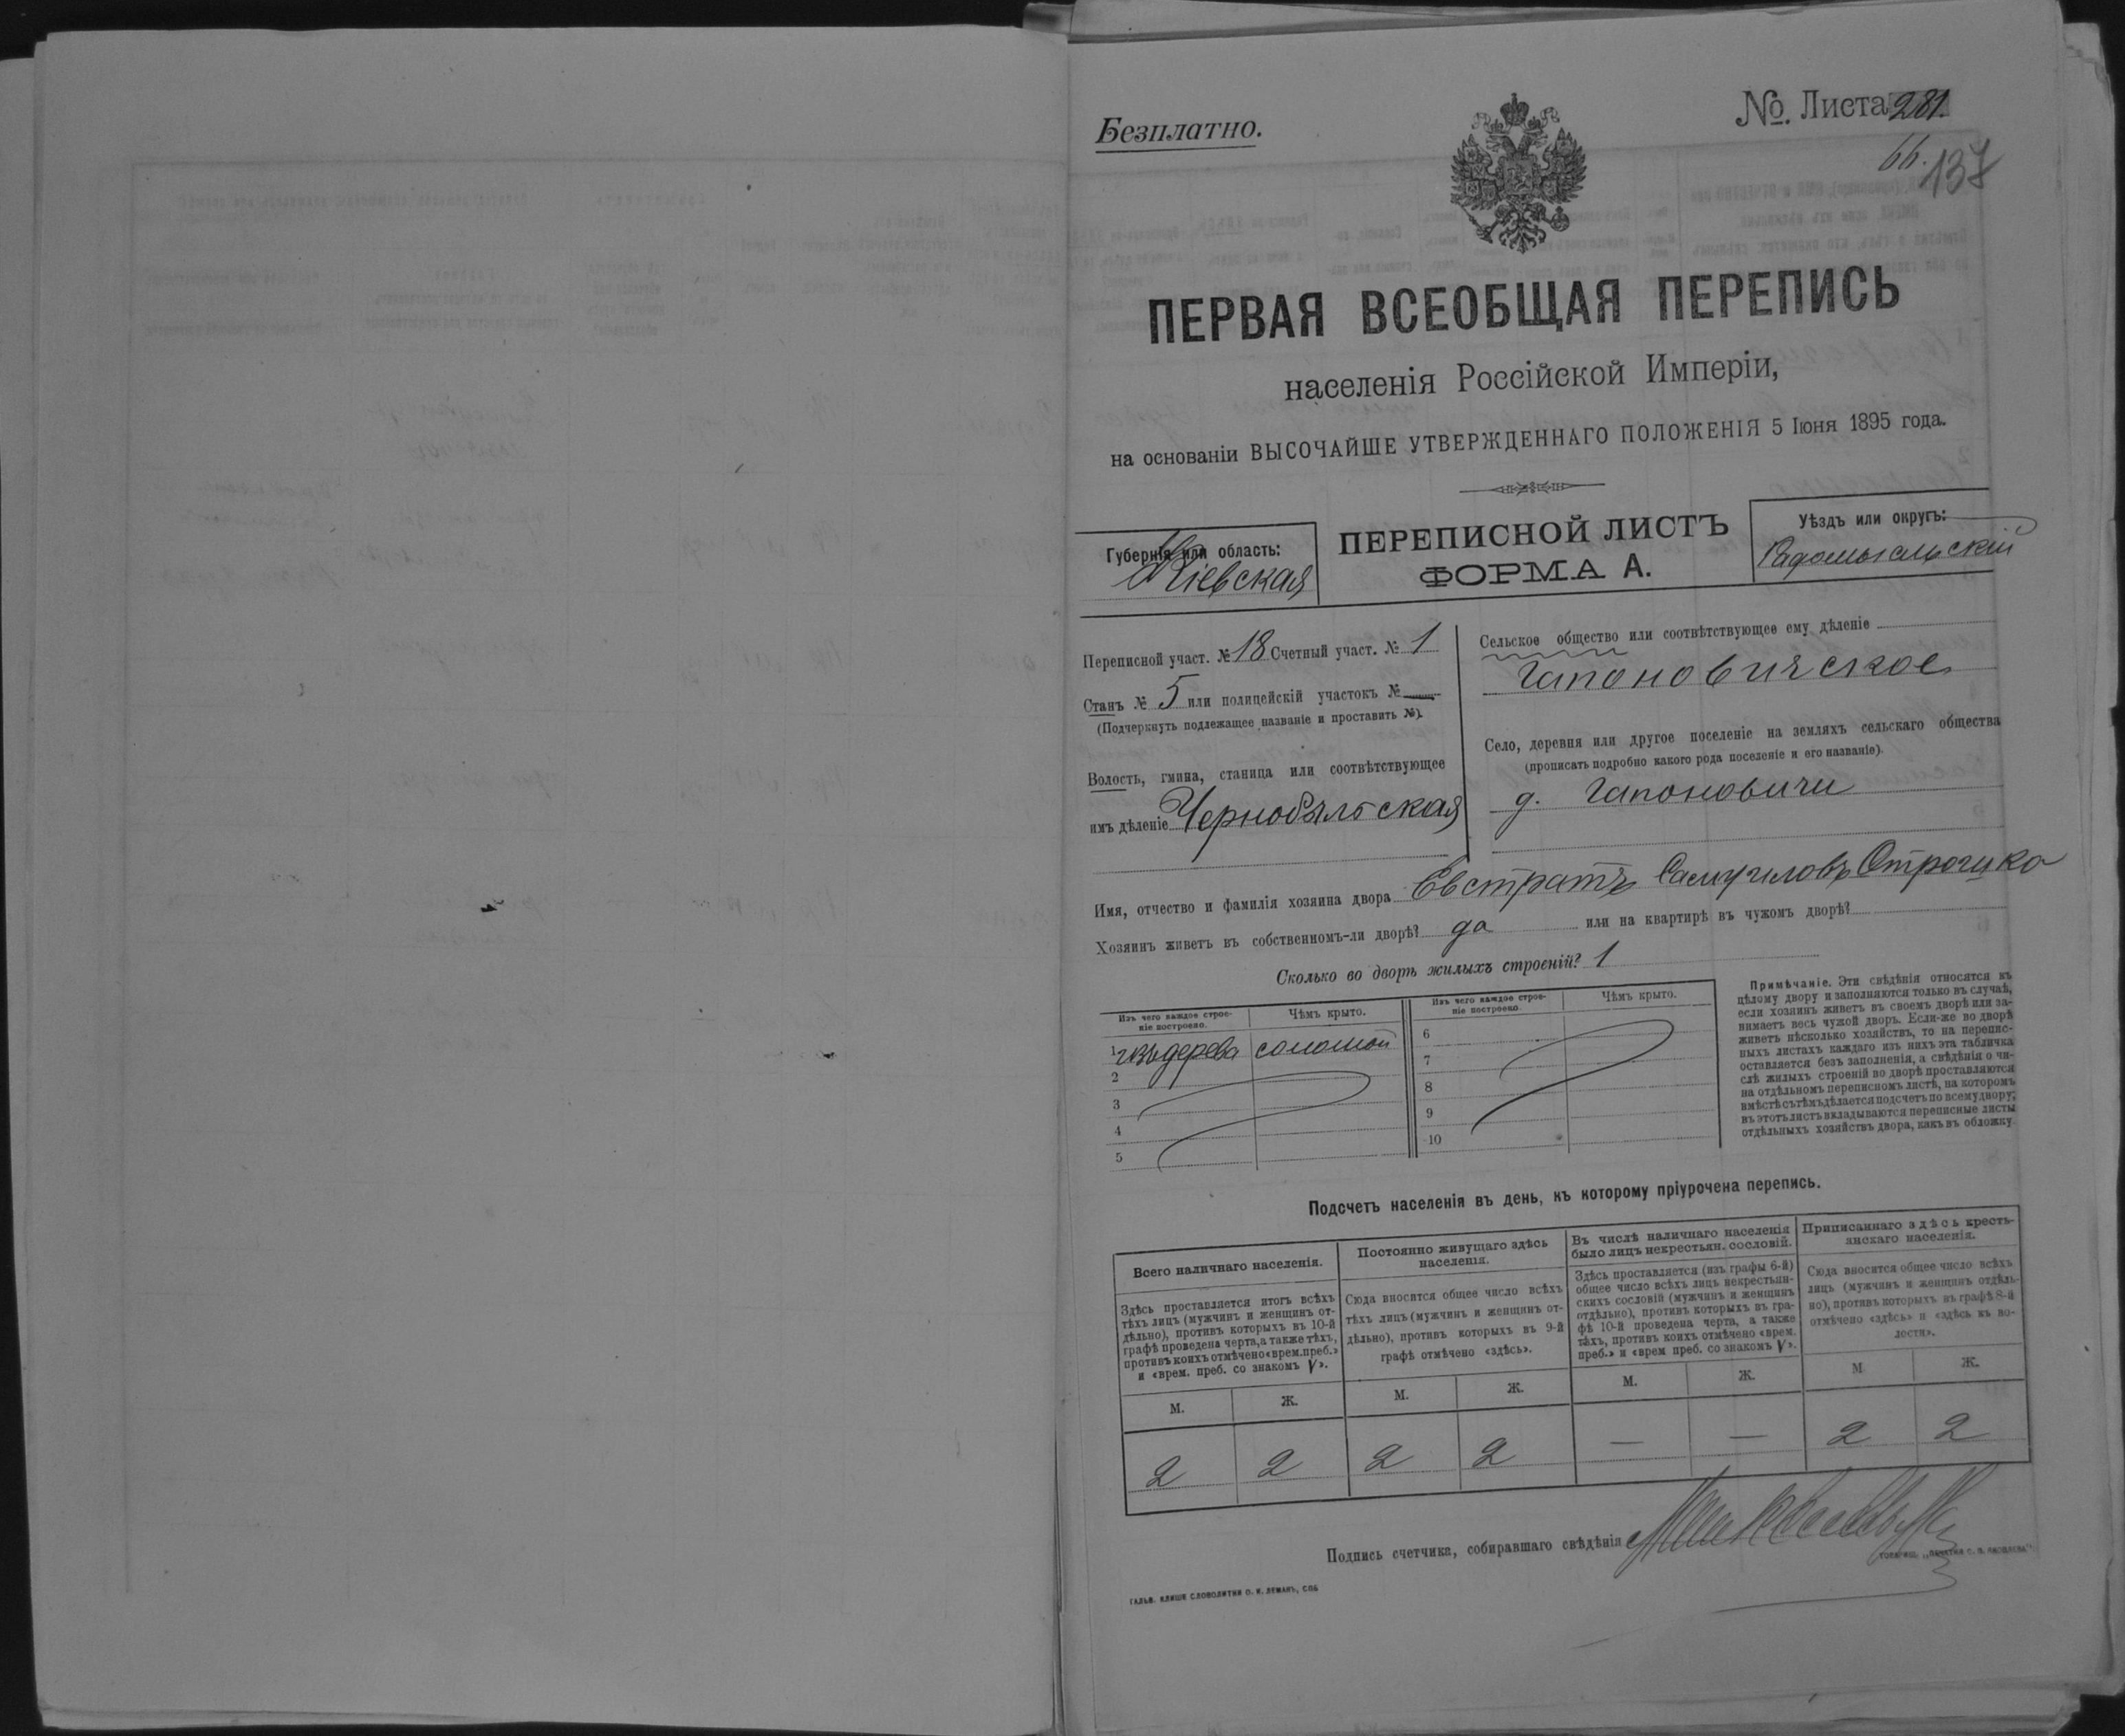 Безплатно.
№. Листа 281.
66. 137
ПЕРВАЯ ВСЕОБЩАЯ ПЕРЕПИСЬ
населенія Россійской Имперіи,
на основаніи ВЫСОЧАЙШЕ УТВЕРЖДЕННАГО ПОЛОЖЕНІЯ 5 Іюня 1895 года.
Губернія или область:
Кіевская
ПЕРЕПИСНОЙ ЛИСТЪ
ФОРМА А.
Уѣздъ или округъ:
Радомысльскій
Переписной участ. № 18 Счетный участ. № 1
Станъ № 5 или полицейскій участокъ № —
(Подчеркнуть подлежащее названіе и проставить №).
Волость, гмина, станица или соотвѣтствующее
имъ дѣленіе Чернобыльская
Сельское общество или соотвѣтствующее ему дѣленіе
Гапоновичское
Село, деревня или другое поселеніе на земляхъ сельскаго общества
(прописать подробно какого рода поселеніе и его названіе).
д. Гапоновичи
Имя, отчество и фамилія хозяина двора Евстратъ Самуиловъ
Хозяинъ живетъ въ собственномъ-ли дворѣ? да или на квартирѣ въ чужомъ дворѣ?
Сколько во дворѣ жилыхъ строеній? 1
Изъ чего каждое строе-
ніе построено.
Чѣмъ крыто.
Изъ чего каждое строе-
ніе построено.
Чѣмъ крыто.
1 изъ дерева соломой
2
3
4
5
6
7
8
9
10
Примѣчаніе. Эти свѣдѣнія относятся къ
цѣлому двору и заполняются только въ случаѣ,
если хозяинъ живетъ въ своемъ дворѣ или за-
нимаетъ весь чужой дворъ. Если-же во дворѣ
живетъ нѣсколько хозяйствъ, то на перепис-
ныхъ листахъ каждаго изъ нихъ эта табличка
оставляется безъ заполненія, а свѣдѣнія о чи-
слѣ жилыхъ строеній во дворѣ проставляются
на отдѣльномъ переписномъ листѣ, на которомъ
вмѣстѣ съ тѣмъ дѣлается подсчетъ по всему двору;
въ этотъ листъ вкладываются переписные листы
отдѣльныхъ хозяйствъ двора, какъ въ обложку.
Подсчетъ населенія въ день, къ которому пріурочена перепись.
Всего наличнаго населенія.
Здѣсь проставляется итогъ всѣхъ
тѣхъ лицъ (мужчинъ и женщинъ от-
дѣльно), противъ которыхъ въ 10-й
графѣ проведена черта, а также тѣхъ,
противъ коихъ отмѣчено «врем. преб.»
и «врем. преб. со знакомъ V».
М. Ж.
2 2
Постоянно живущаго здѣсь
населенія.
Сюда вносится общее число всѣхъ
тѣхъ лицъ (мужчинъ и женщинъ от-
дѣльно), противъ которыхъ въ 9-й
графѣ отмѣчено «здѣсь».
М. Ж.
2 2
Въ числѣ наличнаго населенія
было лицъ некрестьян. сословій.
Здѣсь проставляется (изъ графы 6-й)
общее число всѣхъ лицъ некрестьян-
скихъ сословій (мужчинъ и женщинъ
отдѣльно), противъ которыхъ въ гра-
фѣ 10-й проведена черта, а также
тѣхъ, противъ коихъ отмѣчено «врем.
преб.» и «врем преб. со знакомъ V».
М. Ж.
— —
Приписаннаго здѣсь кресть-
янскаго населенія.
Сюда вносится общее число всѣхъ
лицъ (мужчинъ и женщинъ отдѣль-
но), противъ которыхъ въ графѣ 8-й
отмѣчено «здѣсь» и «здѣсь въ во-
лости».
М Ж.
2 2
Подпись счетчика, собиравшаго свѣдѣнія
ГАЛЬВ. КЛИШЕ СЛОВОЛИТНИ О. И. ЛЕМАНЪ, СПБ
ТОВАРИЩ. „ПЕЧАТНЯ С. П. ЯКОВЛЕВА"